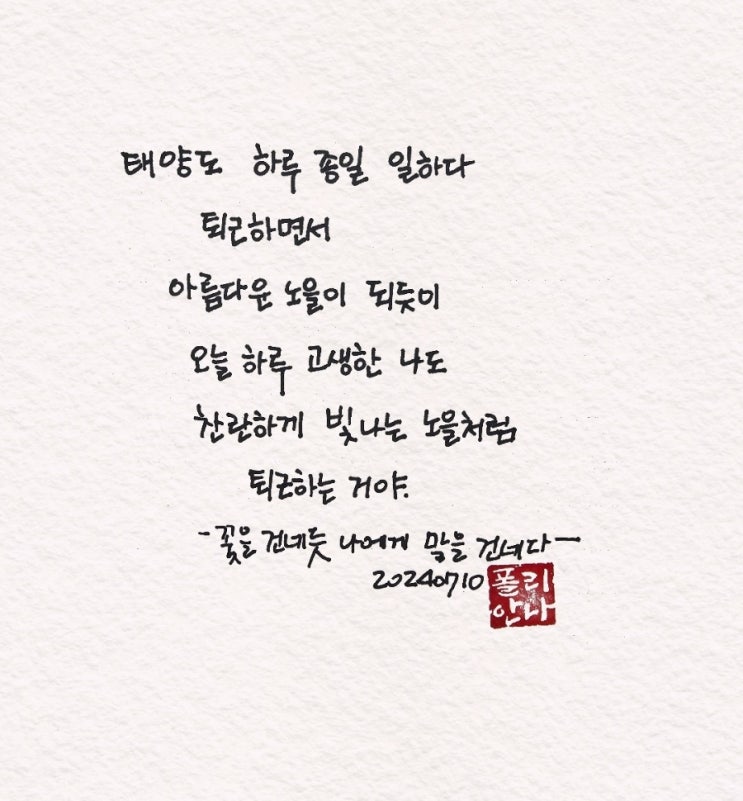 태양도 하루 종일 일하다
퇴근하면서
아름다운 노을이 되듯이
오늘 하루 고생한 나도
찬란하게 빛나는 노을처럼
퇴근하는 거야.
-꽃을 건네듯 나에게 말을 건네다-
20240710
폴리
안나